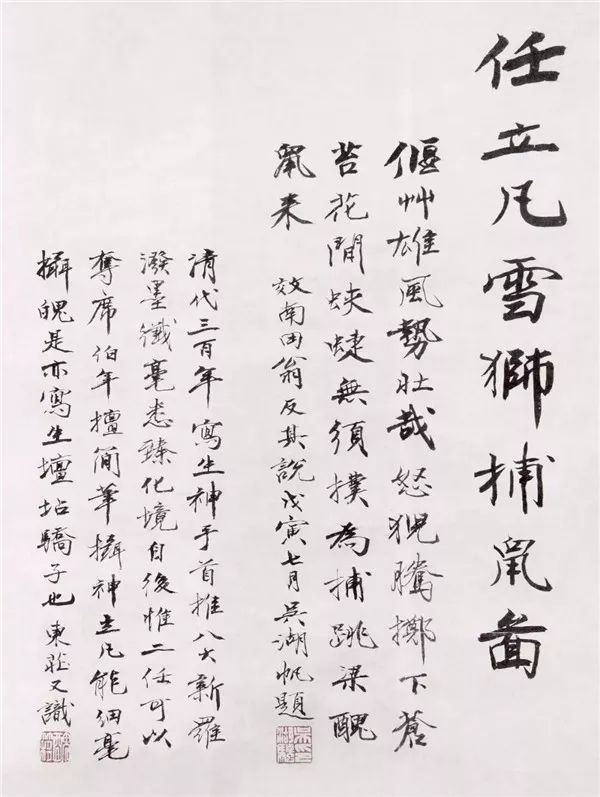 任立凡雪獅捕鼠圖
偃艸雄風勢壯哉怒猊騰擲下蒼
苔花間蛺蜨無須撲為捕跳梁醜
鼠来 效南田翁反其說戊寅七月吳湖帆題
清代三百年寫生神手首推八大新羅
潑墨纖毫悉臻化境自後惟二任可以
奪席伯年擅簡筆攝神立凡能細毫
攝魄是亦寫生壇坫驕子也東莊又識